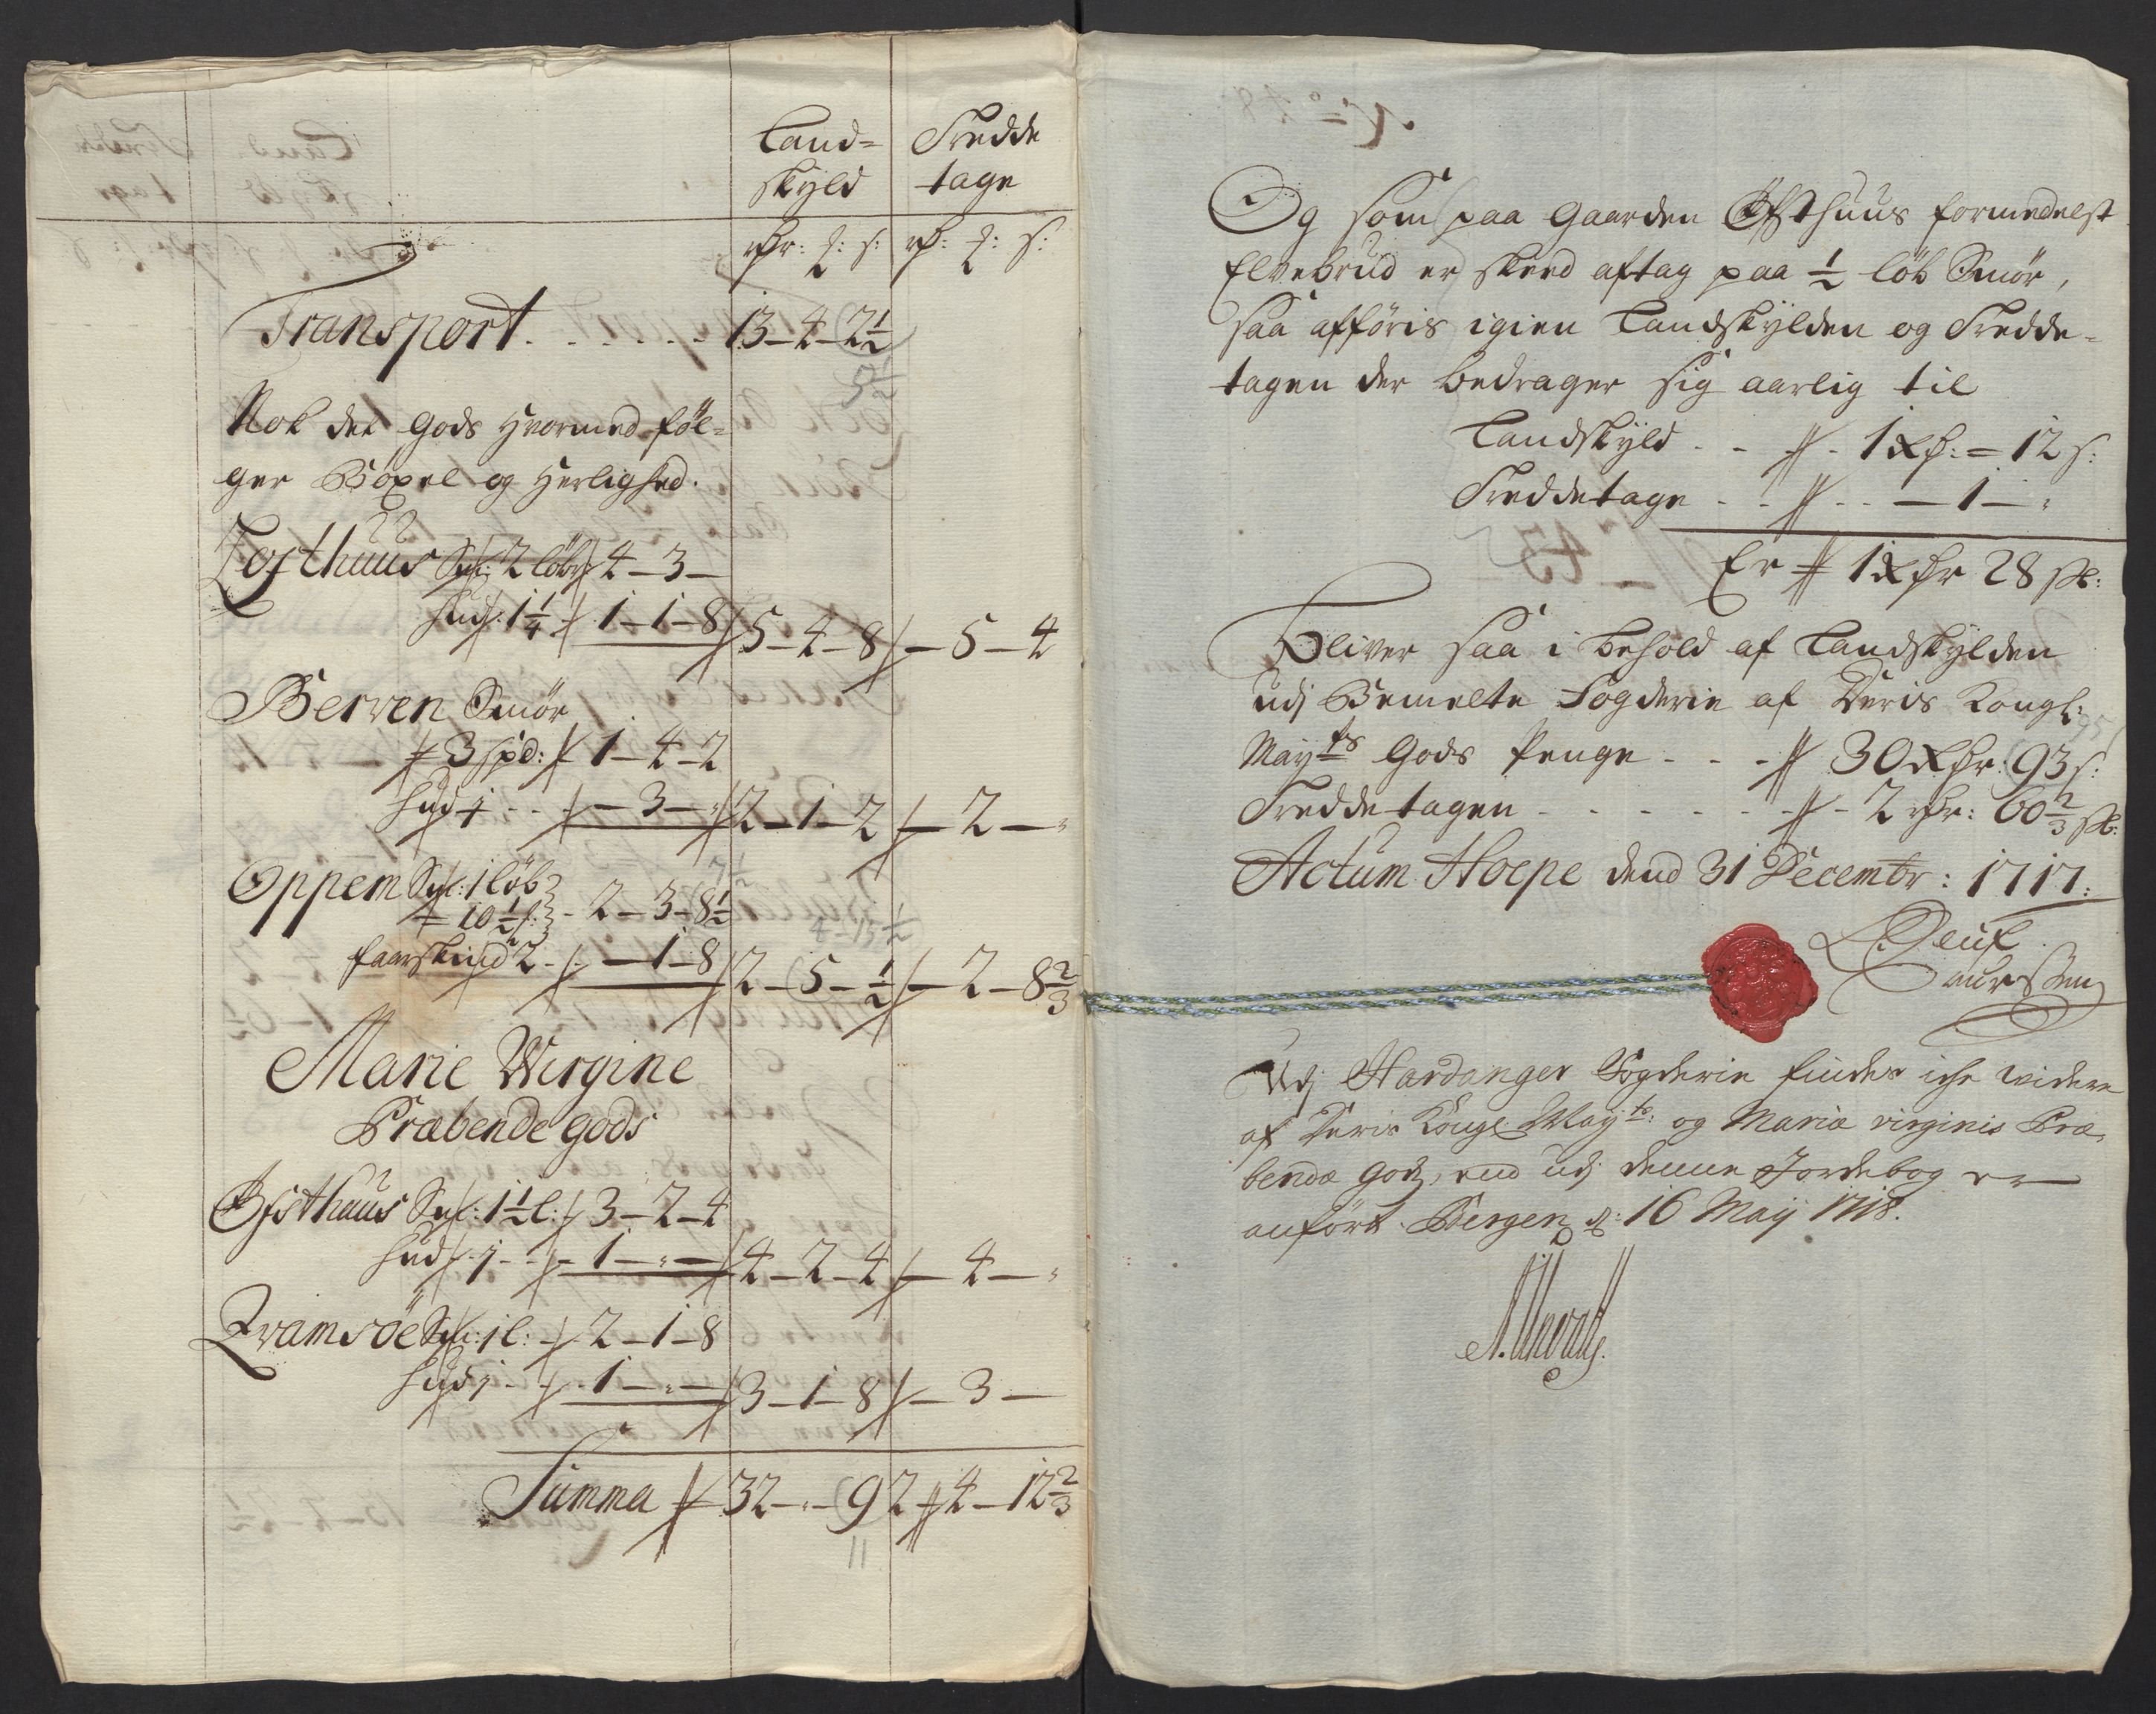 Land= Tredde
skyld tage
rdr: ℥: s: rd: ℥: s:
Transport. . . . . . 13–4–2½
Nok det Gods Hvormed föl=
ger Böxel og Herlighed.
Lofthuus Sm: 2 löber 4–3–
hud: 1¼ – 1–1–8 5–4–8 –5–4
Berven Smör
3 spd: 1–4–2
hud j - - –3–" 2–1–2 –2–"
Oppem Sm: 1 löb
10½ - 2–3–8½
faarskind 2 - –1–8 2–5–½ –2–8⅔
Marie Wirgine
Præbende gods
Ofsthuus Sm: 1½ l: 3–2–4
hud j - - 1–"– 4–2–4 –4–"
Qvamsöe Sm: 1 l: 2–1–8
hud j - - 1–"– 3–1–8 –3–
Summa 32–"–92 4–12⅔
11
Og som paa Gaarden Ofsthuus formedelst
Elvebrud er skeed aftag paa ½ löb Smör,
saa afföris igien Landskylden og Tredde=
tagen der bedrager sig aarlig til
Landskyld - - 1 Rdr: = 12 s:
Treddetage - - - - –1–"
Er 1 Rdr 28 sk:
Bliver saa i behold af Landskylden
udj Bemelte Fogderie af Deris Kongl:
Mayts Gods Penge - - - 30 Rdr: 93 s:
Treddetagen - - - - - - 2 rdr: 60⅔ sk:
Actum Hoepe dend 31 Decembr: 1717:
Laursen
Udj Hardanger Fogderie findes iche videre
af Deris Kongl Mayts: og Mariæ virginis Præ-
bendæ gods, end udj denne Jordebog er
anfört. Bergen d: 16 Maij 1718.